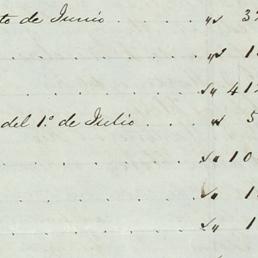 to de Junio . . . . . " 3
. . . . . " 1
. . . . . " 41
del 1.º de Julio . . . " 5
. . . . . " 10
. . . . . " 1
. . . . . " 1